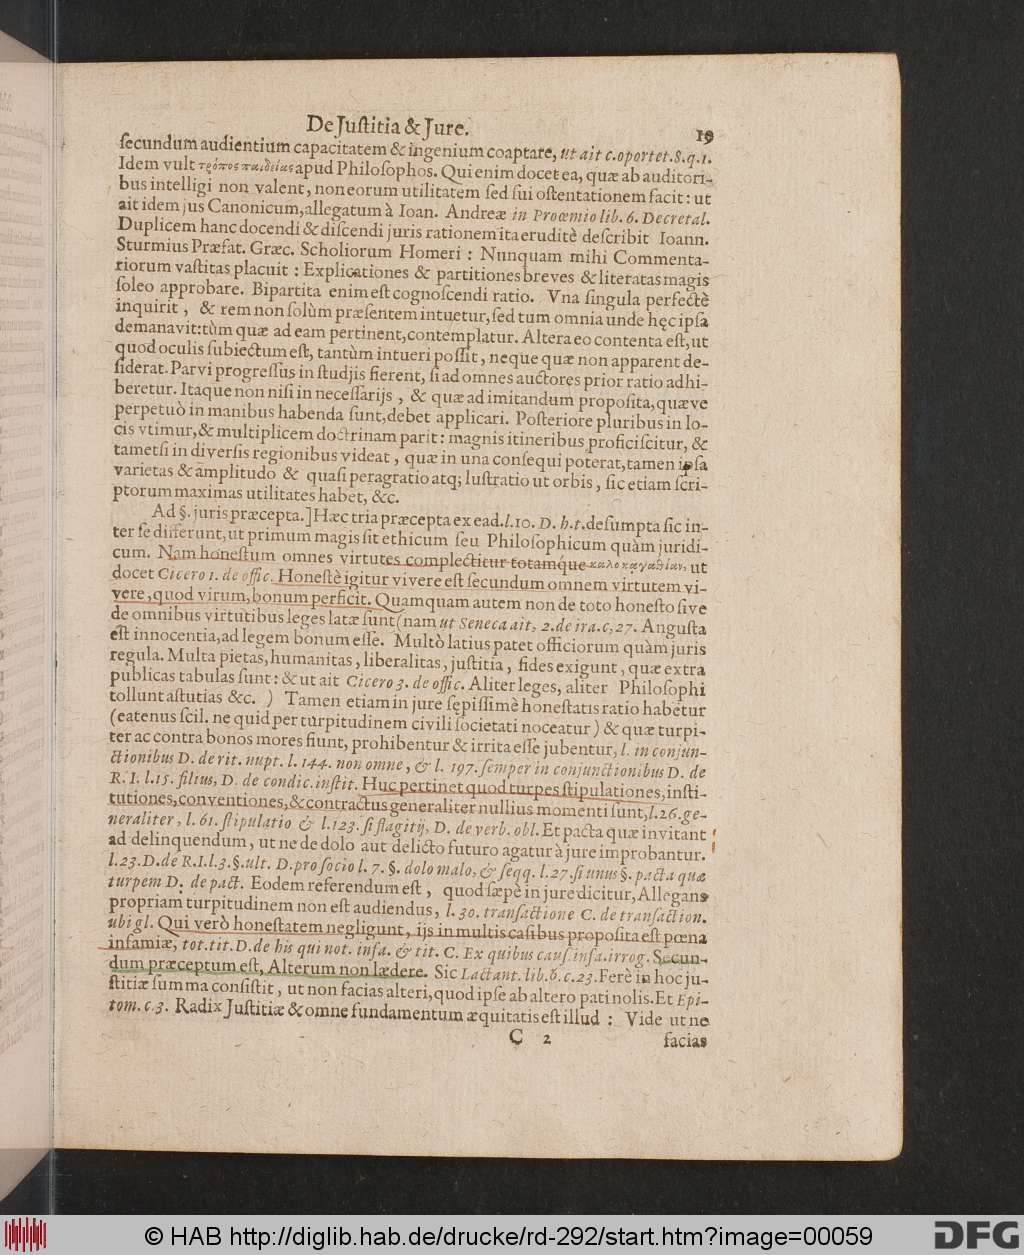 De Juſtitia & Jure. 19
ſecundum audientium capacitatem & ingenium coaptare, ut ait c. oportet. 8. q. 1.
Idem vult τρόπος παιδείας apud Philoſophos. Qui enim docet ea, quæ ab auditori-
bus intelligi non valent, non eorum utilitatem ſed ſui oſtentationem facit: ut
ait idem jus Canonicum, allegatum à Ioan. Andreæ in Proœmio lib. 6. Decretal.
Duplicem hanc docendi & diſcendi juris rationem ita eruditè deſcribit Ioann.
Sturmius Præfat. Græc. Scholiorum Homeri: Nunquam mihi Commenta-
riorum vaſtitas placuit: Explicationes & partitiones breves & literatas magis
ſoleo approbare. Bipartita enim eſt cognoſcendi ratio. Vna ſingula perfectè
inquirit, & rem non ſolùm præſentem intuetur, ſed tum omnia unde hęc ipſa
demanavit: tùm quæ ad eam pertinent, contemplatur. Altera eo contenta eſt, ut
quod oculis ſubiectum eſt, tantùm intueri poſſit, neque quæ non apparent de-
ſiderat. Parvi progreſſus in ſtudjis fierent, ſi ad omnes auctores prior ratio adhi-
beretur. Itaque non niſi in neceſſarijs, & quæ ad imitandum propoſita, quæve
perpetuò in manibus habenda ſunt, debet applicari. Poſteriore pluribus in lo-
cis vtimur, & multiplicem doctrinam parit: magnis itineribus proficiſcitur, &
tametſi in diverſis regionibus videat, quæ in una conſequi poterat, tamen ipſa
varietas & amplitudo & quaſi peragratio atq; luſtratio ut orbis, ſic etiam ſcri-
ptorum maximas utilitates habet, &c.
Ad §. juris præcepta.] Hæc tria præcepta ex ead. l. 10. D. h. t. deſumpta ſic in-
ter ſe differunt, ut primum magis ſit ethicum ſeu Philoſophicum quàm juridi-
cum. Nam honeſtum omnes virtutes complectitur totamque καλοκαγαθίαν, ut
docet Cicero 1. de offic. Honeſtè igitur vivere eſt ſecundum omnem virtutem vi-
vere, quod virum, bonum perficit. Quamquam autem non de toto honeſto ſive
de omnibus virtutibus leges latæ ſunt (nam ut Seneca ait, 2. de ira. c, 27. Anguſta
eſt innocentia, ad legem bonum eſſe. Multò latius patet officiorum quàm juris
regula. Multa pietas, humanitas, liberalitas, juſtitia, fides exigunt, quæ extra
publicas tabulas ſunt: & ut ait Cicero 3. de offic. Aliter leges, aliter Philoſophi
tollunt aſtutias &c. ) Tamen etiam in jure ſępiſſimè honeſtatis ratio habetur
(eatenus ſcil. ne quid per turpitudinem civili ſocietati noceatur) & quæ turpi-
ter ac contra bonos mores fiunt, prohibentur & irrita eſſe jubentur, l. in conjun-
ctionibus D. de rit. nupt. l. 144. non omne, & l. 197. ſemper in conjunctionibus D. de
R. I. l. 15. filius, D. de condic. inſtit. Huc pertinet quod turpes ſtipulationes, inſti-
tutiones, conventiones, & contractus generaliter nullius momenti ſunt, l. 26. ge-
neraliter, l. 61. ſtipulatio & l. 123. ſi flagitij, D. de verb. obl. Et pacta quæ invitant
ad delinquendum, ut ne de dolo aut delicto futuro agatur à jure improbantur.
l. 23. D. de R. I. l. 3. §. ult. D. pro ſocio l. 7. §. dolo malo, & ſeqq. l. 27. ſi unus §. pacta quæ
turpem D. de pact. Eodem referendum eſt, quod ſæpè in jure dicitur, Allegans
propriam turpitudinem non eſt audiendus, l. 30. tranſactione C. de tranſaction.
ubi gl. Qui verò honeſtatem negligunt, ijs in multis caſibus propoſita eſt pœna
infamiæ, tot. tit. D. de his qui not. infa. & tit. C. Ex quibus cauſ. infa. irrog. Secun-
dum præceptum eſt, Alterum non lædere. Sic Lactant. lib. 6. c. 23. Ferè in hoc ju-
ſtitiæ ſumma conſiſtit, ut non facias alteri, quod ipſe ab altero pati nolis. Et Epi-
tom. c. 3. Radix Juſtitiæ & omne fundamentum æquitatis eſt illud: Vide ut ne
C 2 facias
© HAB http://diglib.hab.de/drucke/rd-292/start.htm?image=00059 DFG